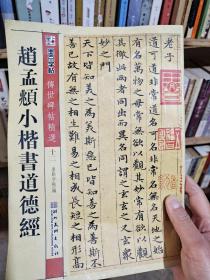 墨点字帖
傳世碑帖精選
十
趙孟頫小楷書道德經
老子
道可道非常道名可名非常名無名天地之始
有名萬物之母常無欲以觀其妙常有欲以觀
其徼此兩者同出而異名同謂之玄玄之又玄衆
妙之門
天下皆知美之為美斯惡已皆知善之為善斯不
善已故有無之相生難易之相成長短之相形高